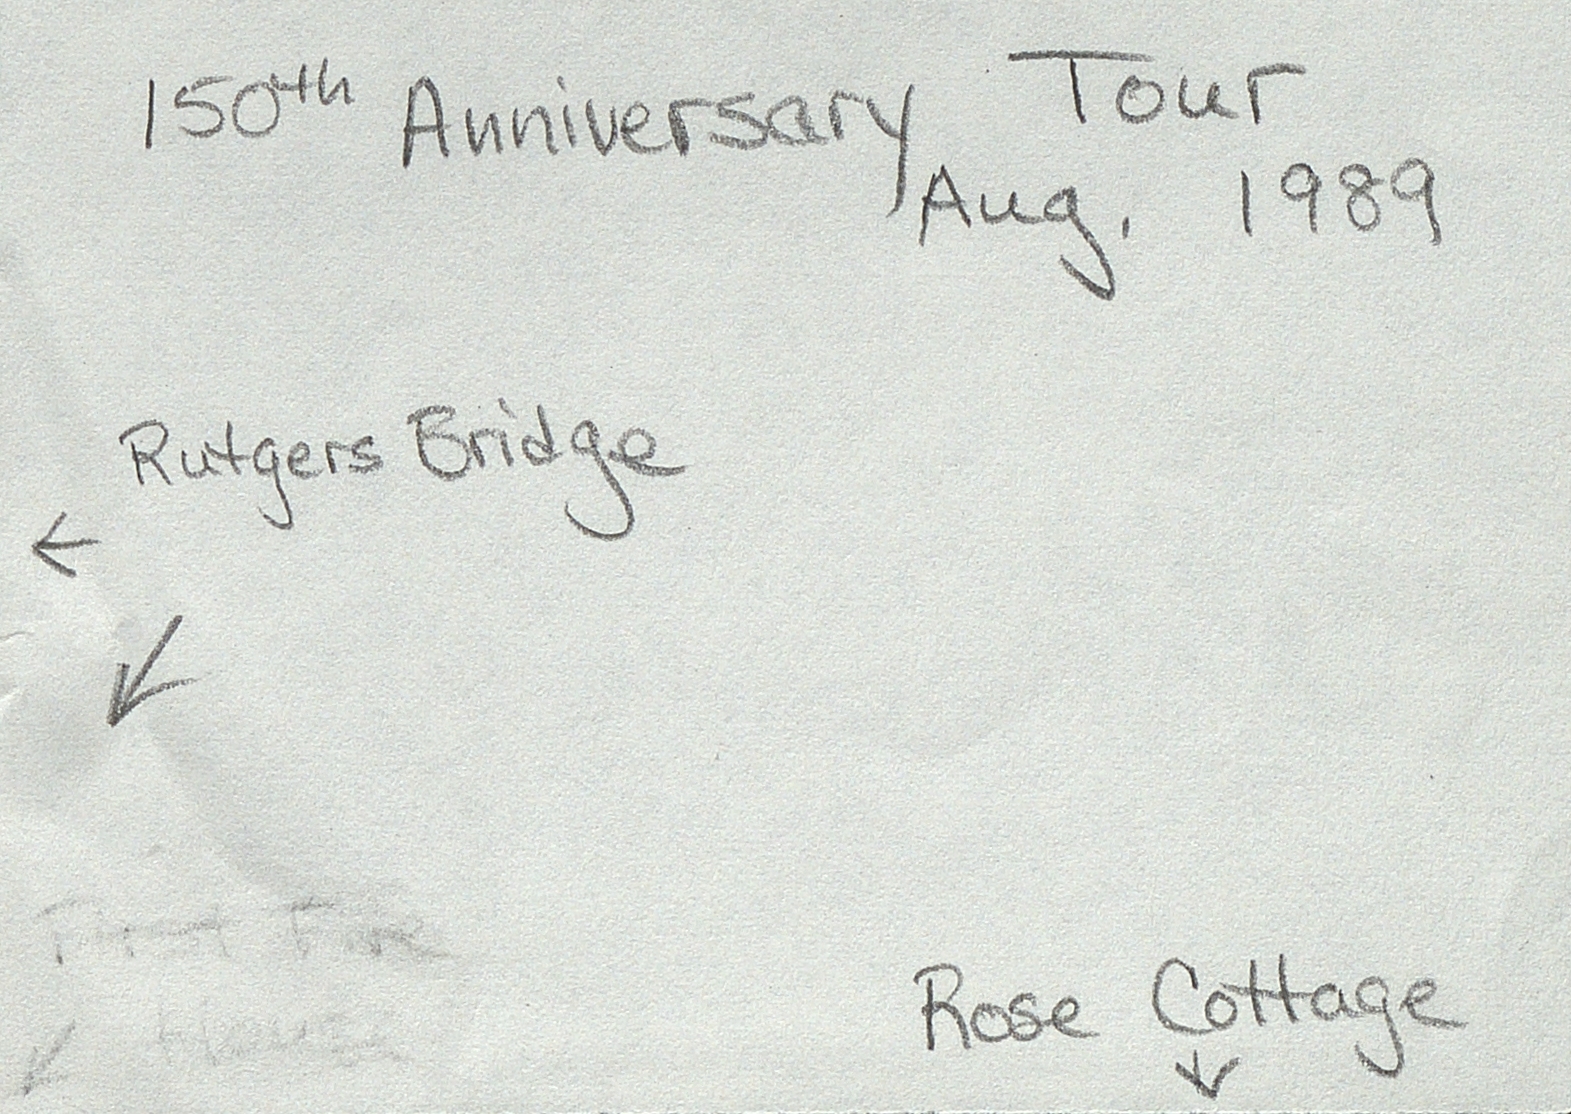 150th Anniversary Tour
Aug. 1989
Rutgers Bridge
First Fire
House
Rose Cottage